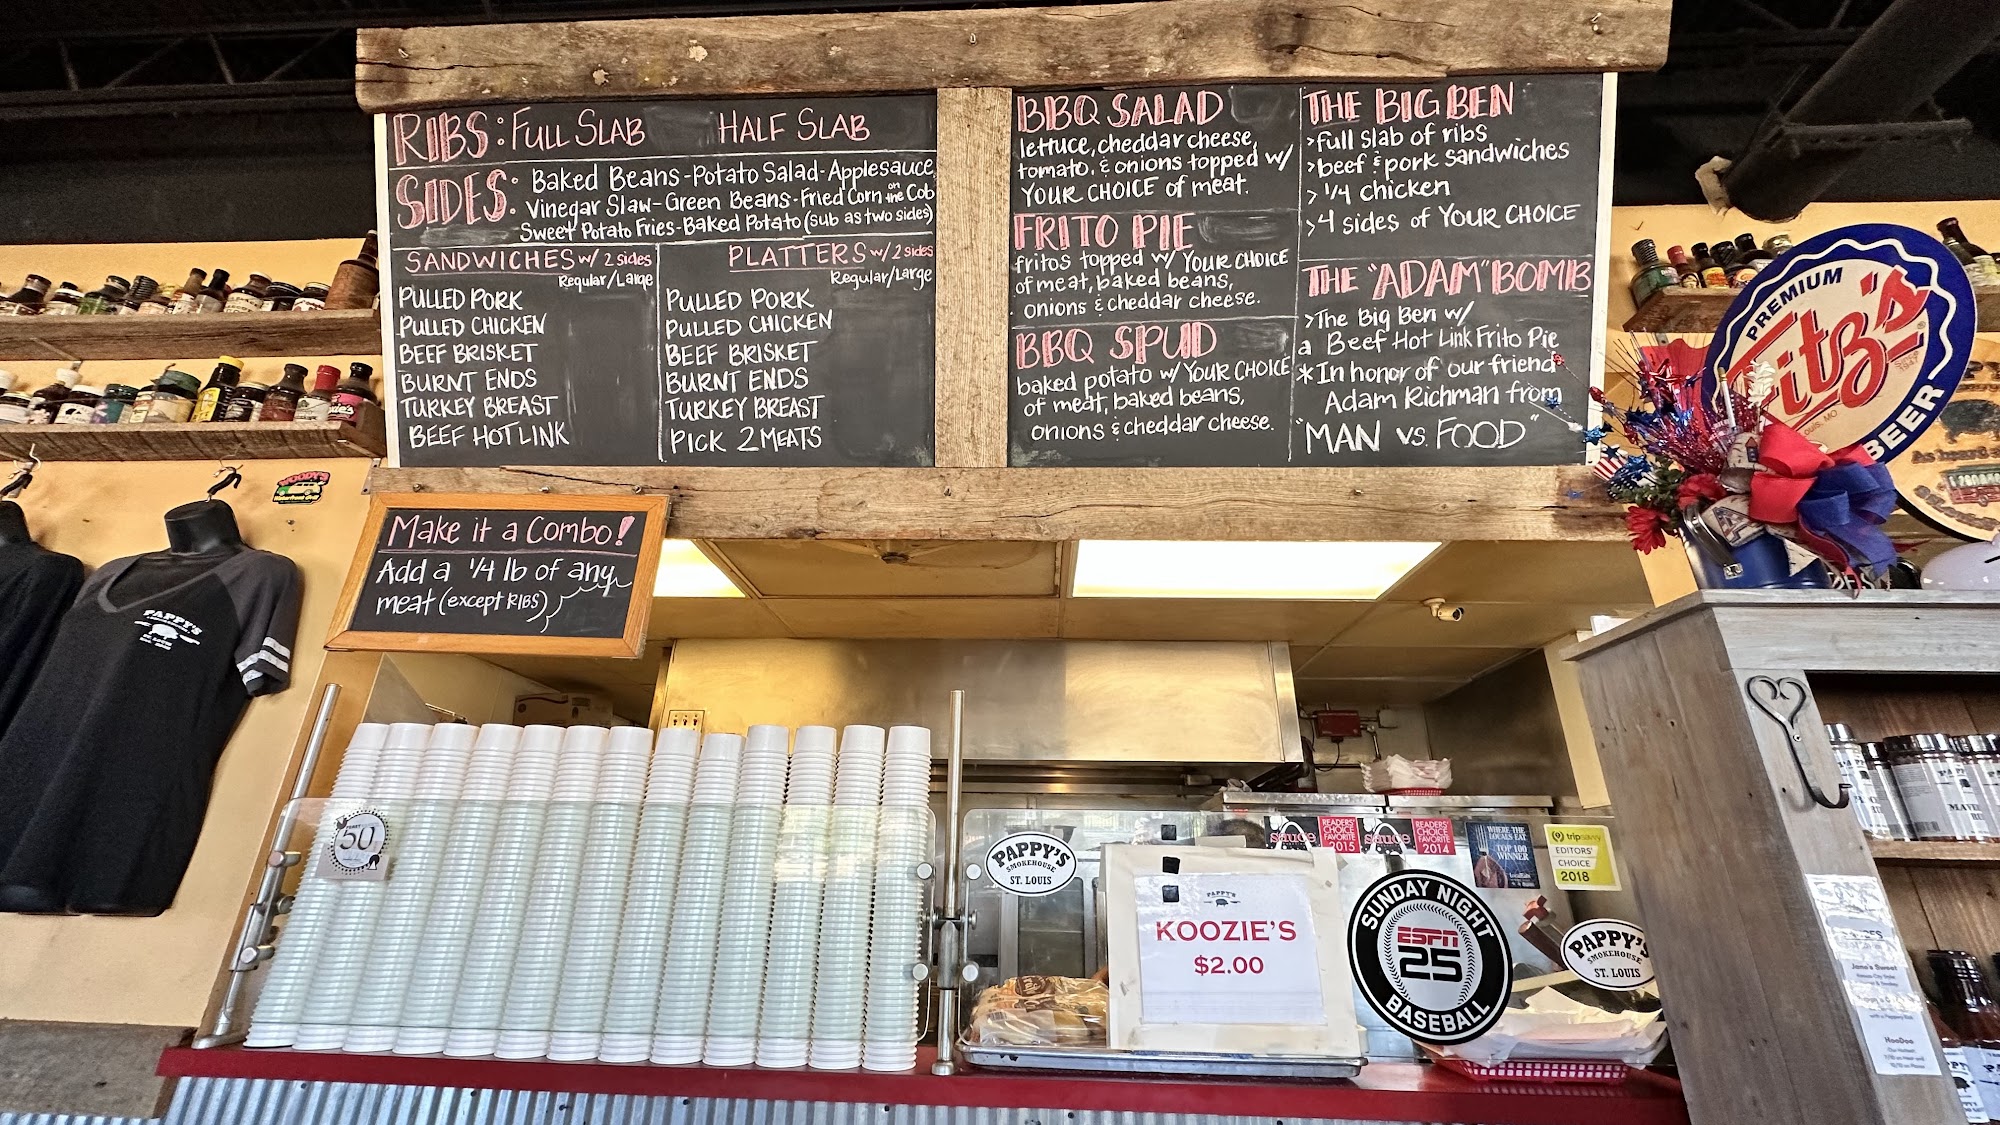 RIBS: FULL SLAB HALF SLAB
SIDES: Baked Beans-Potato Salad-Applesauce
Vinegar Slaw-Green Beans-Fried Corn on the Cob
Sweet Potato Fries-Baked Potato (sub as two sides)
SANDWICHES w/ 2 sides
Regular/Large
PULLED PORK
PULLED CHICKEN
BEEF BRISKET
BURNT ENDS
TURKEY BREAST
BEEF HOT LINK
PLATTERS w/ 2 sides
Regular/Large
PULLED PORK
PULLED CHICKEN
BEEF BRISKET
BURNT ENDS
TURKEY BREAST
PICK 2 MEATS
BBQ SALAD
lettuce, cheddar cheese,
tomato, & onions topped w/
YOUR CHOICE of meat.
FRITO PIE
fritos topped w/ YOUR CHOICE
of meat, baked beans,
onions & cheddar cheese.
BBQ SPUD
baked potato w/ YOUR CHOICE
of meat, baked beans,
onions & cheddar cheese.
THE BIG BEN
>full slab of ribs
>beef & pork sandwiches
> 1/4 chicken
>4 sides of YOUR CHOICE
THE "ADAM" BOMB
>The Big Ben w/
a Beef Hot Link Frito Pie
*In honor of our friend
Adam Richman from
"MAN vs. FOOD"
Make it a Combo!
Add a 1/4 lb of any
meat (except RIBS)
PREMIUM
Fitz's
BEER
WOODY'S
PAPPY'S
50
PAPPY'S
SMOKEHOUSE
ST. LOUIS
PAPPY'S
KOOZIE'S
$2.00
sauce
READERS'
CHOICE
FAVORITE
2015
sauce
READERS'
CHOICE
FAVORITE
2014
WHERE THE
LOCALS EAT
TOP 100
WINNER
tripsavvy
EDITORS'
CHOICE
2018
SUNDAY NIGHT
ESPN
25
BASEBALL
PAPPY'S
SMOKEHOUSE
ST. LOUIS
Jane's Sweet
HooDoo